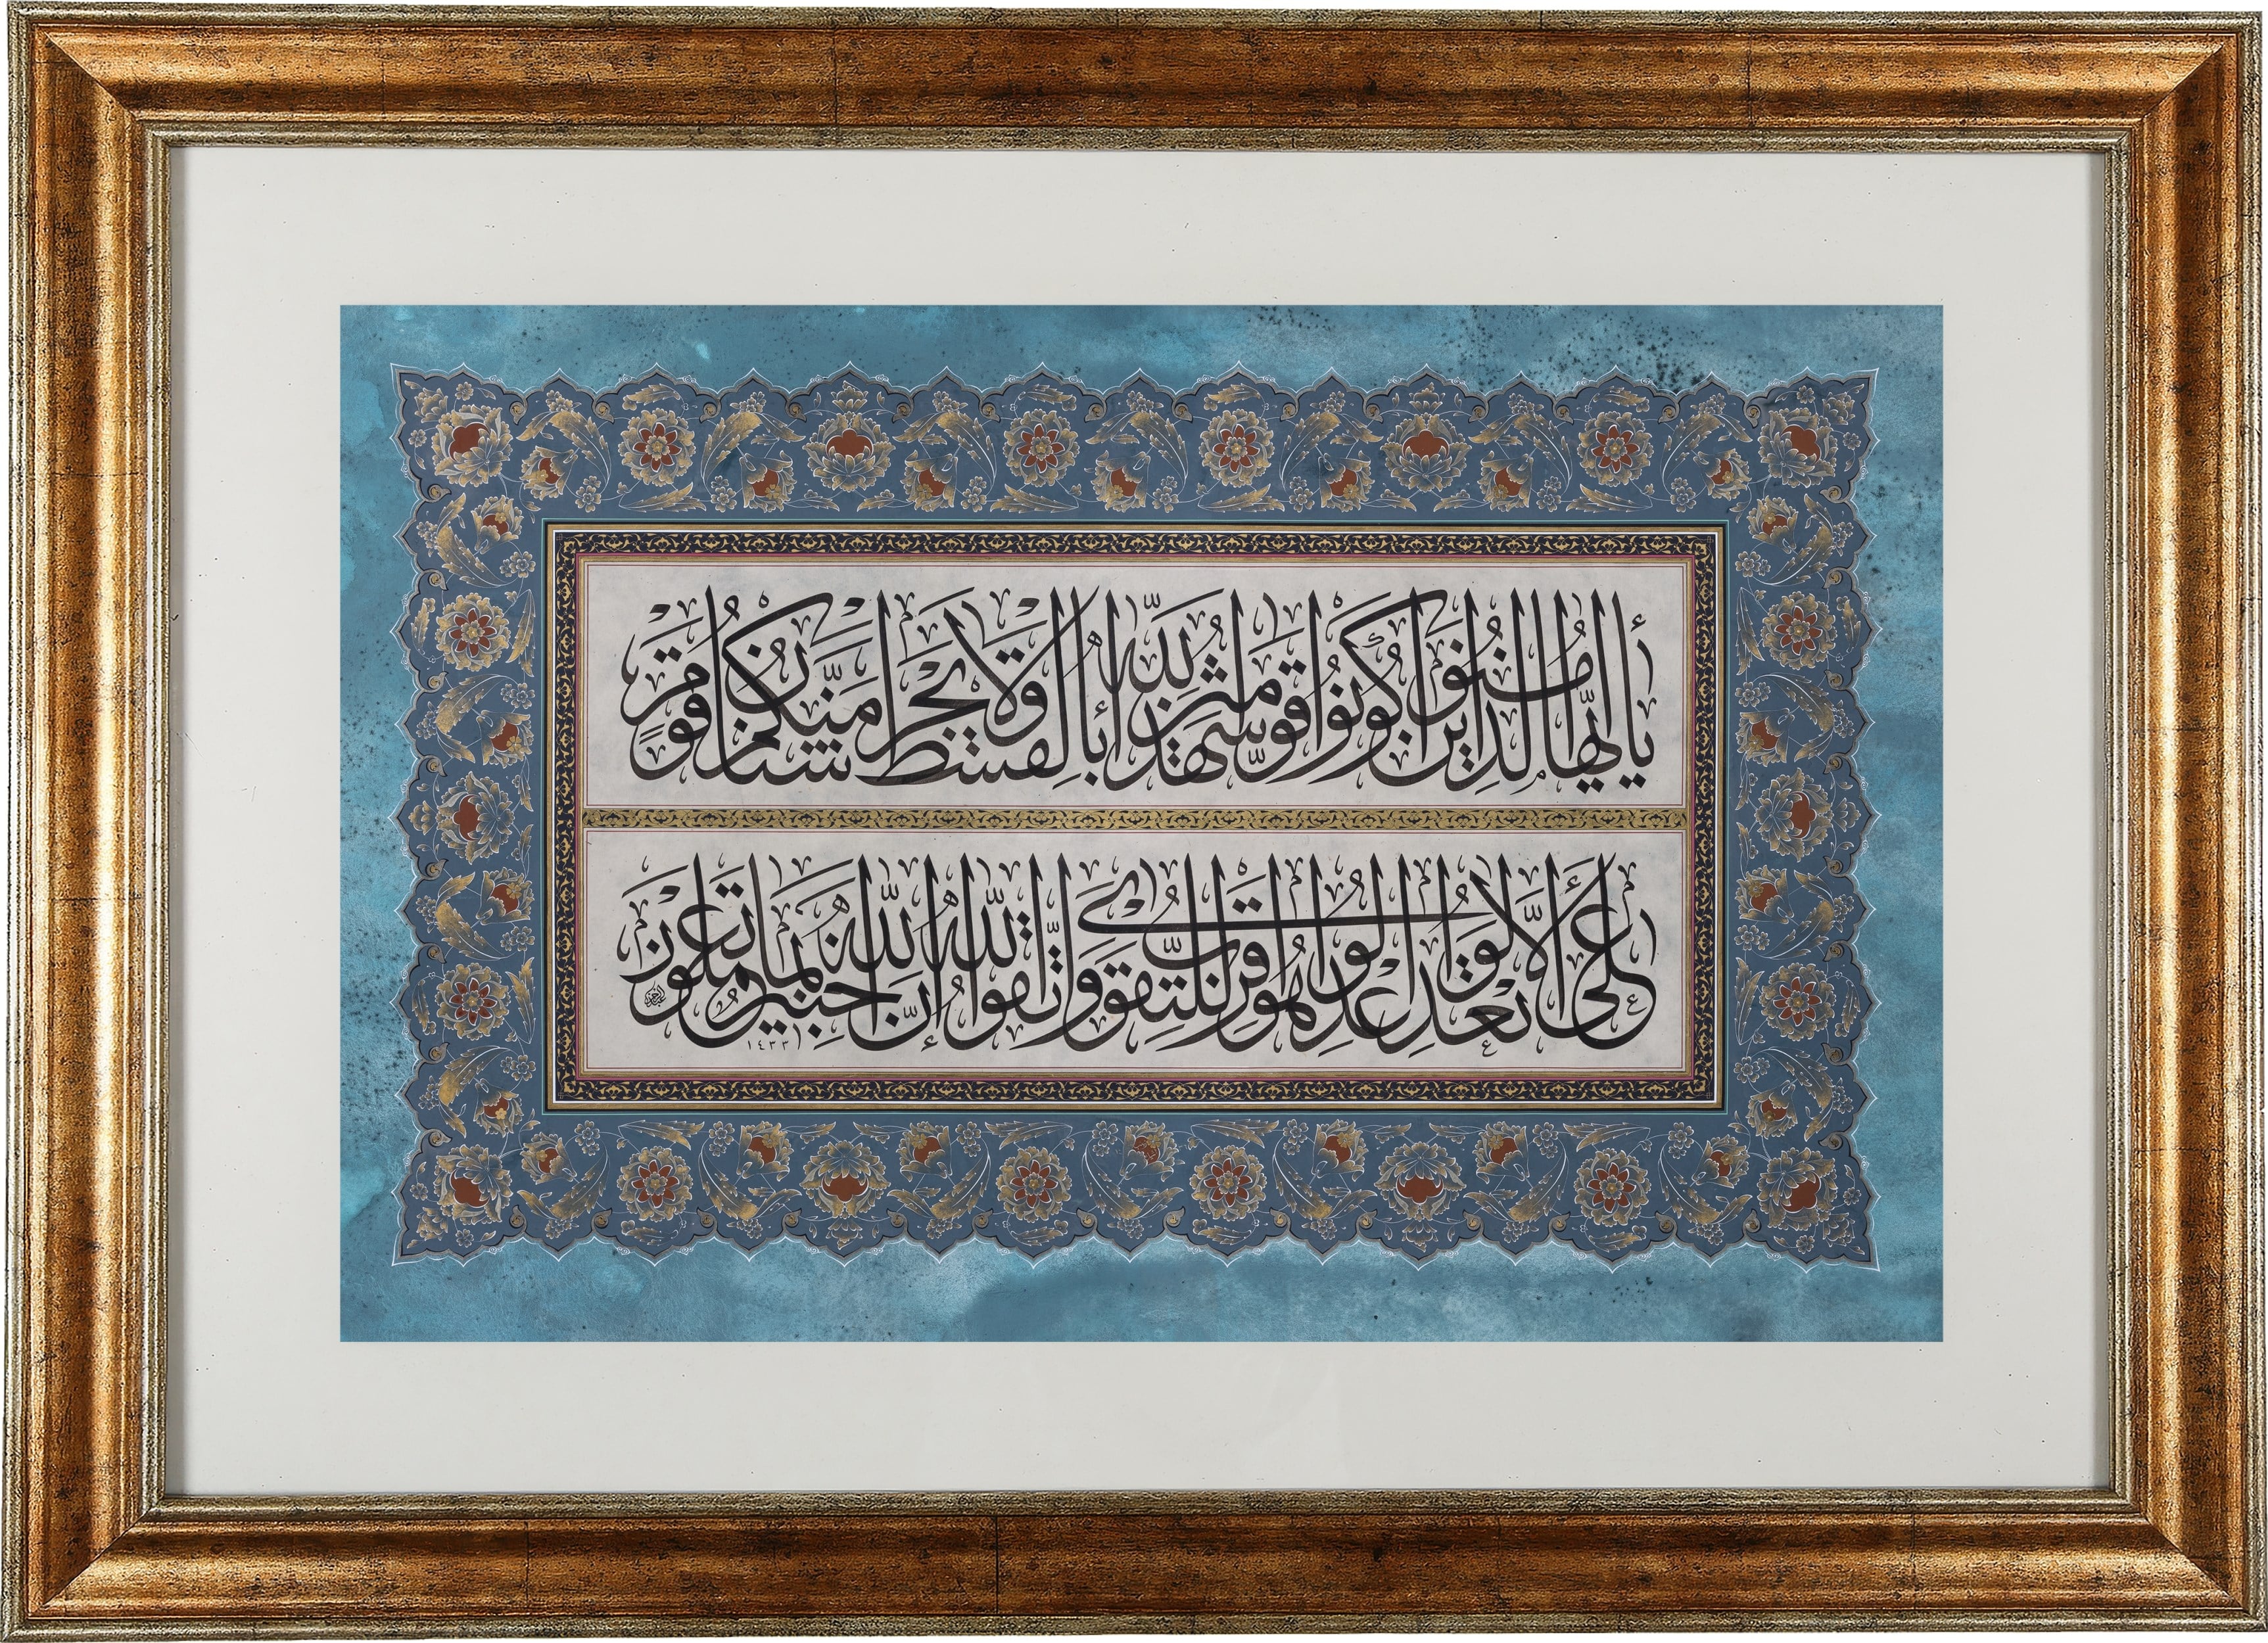 يا أيها الذين آمنوا كونوا قوامين لله شهداء بالقسط ولا يجرمنكم شنآن قوم
على ألا تعدلوا اعدلوا هو أقرب للتقوى واتقوا الله إن الله خبير بما تعملون
١٤٣٣